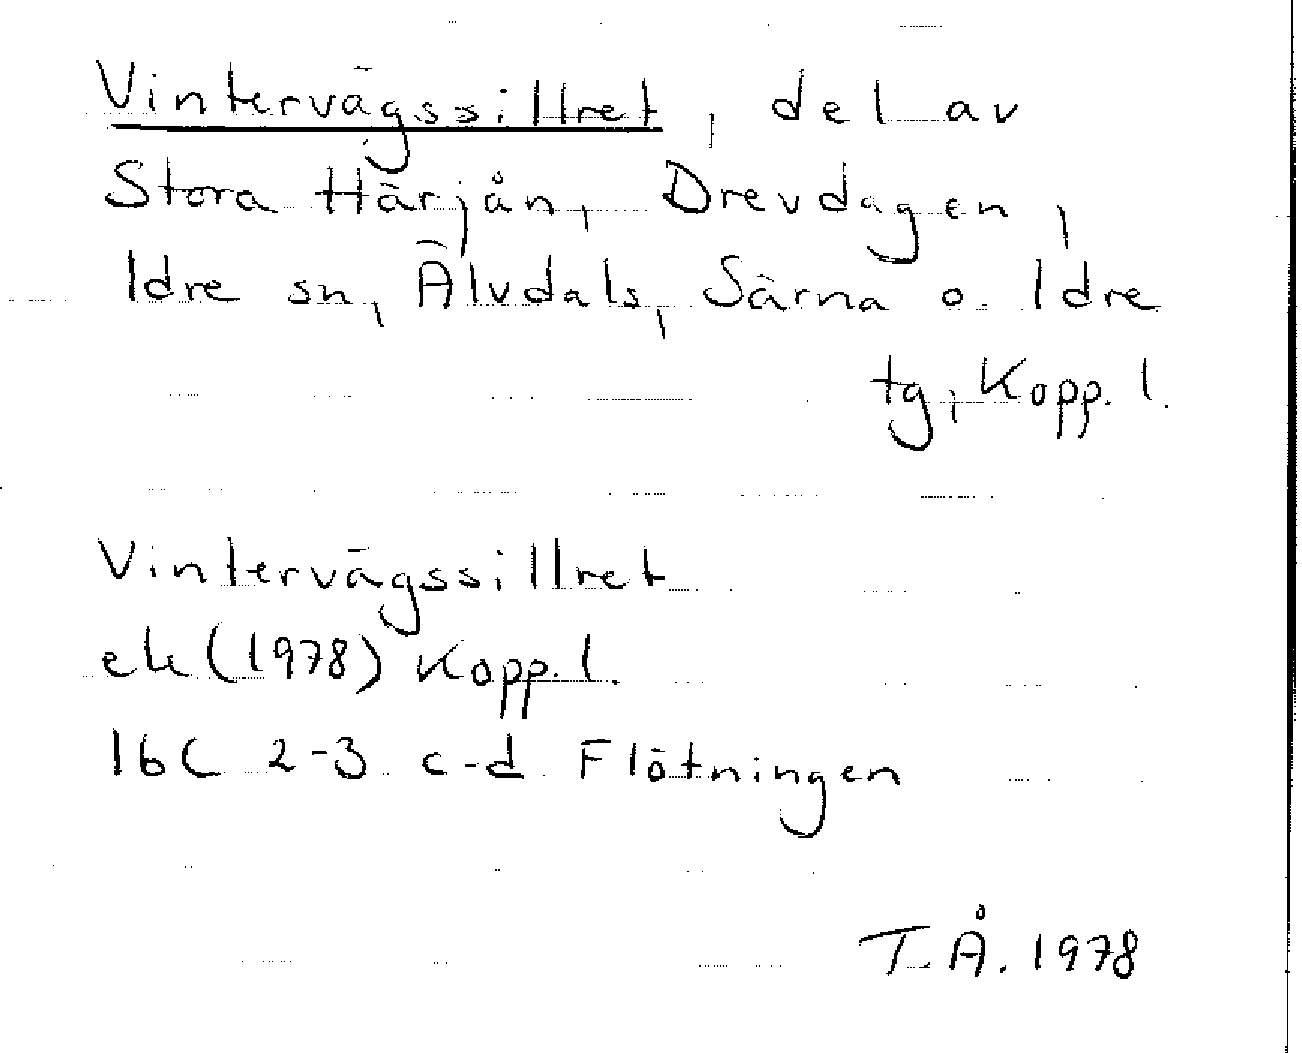 Vintervägssillret, del av
Stora Härjån, Drevdagen,
Idre sn, Älvdals, Särna o. Idre
tg, Kopp. l.
Vintervägssillret
ek (1978) Kopp. l.
16C 2-3 c-d Flötningen
T. Å. 1978